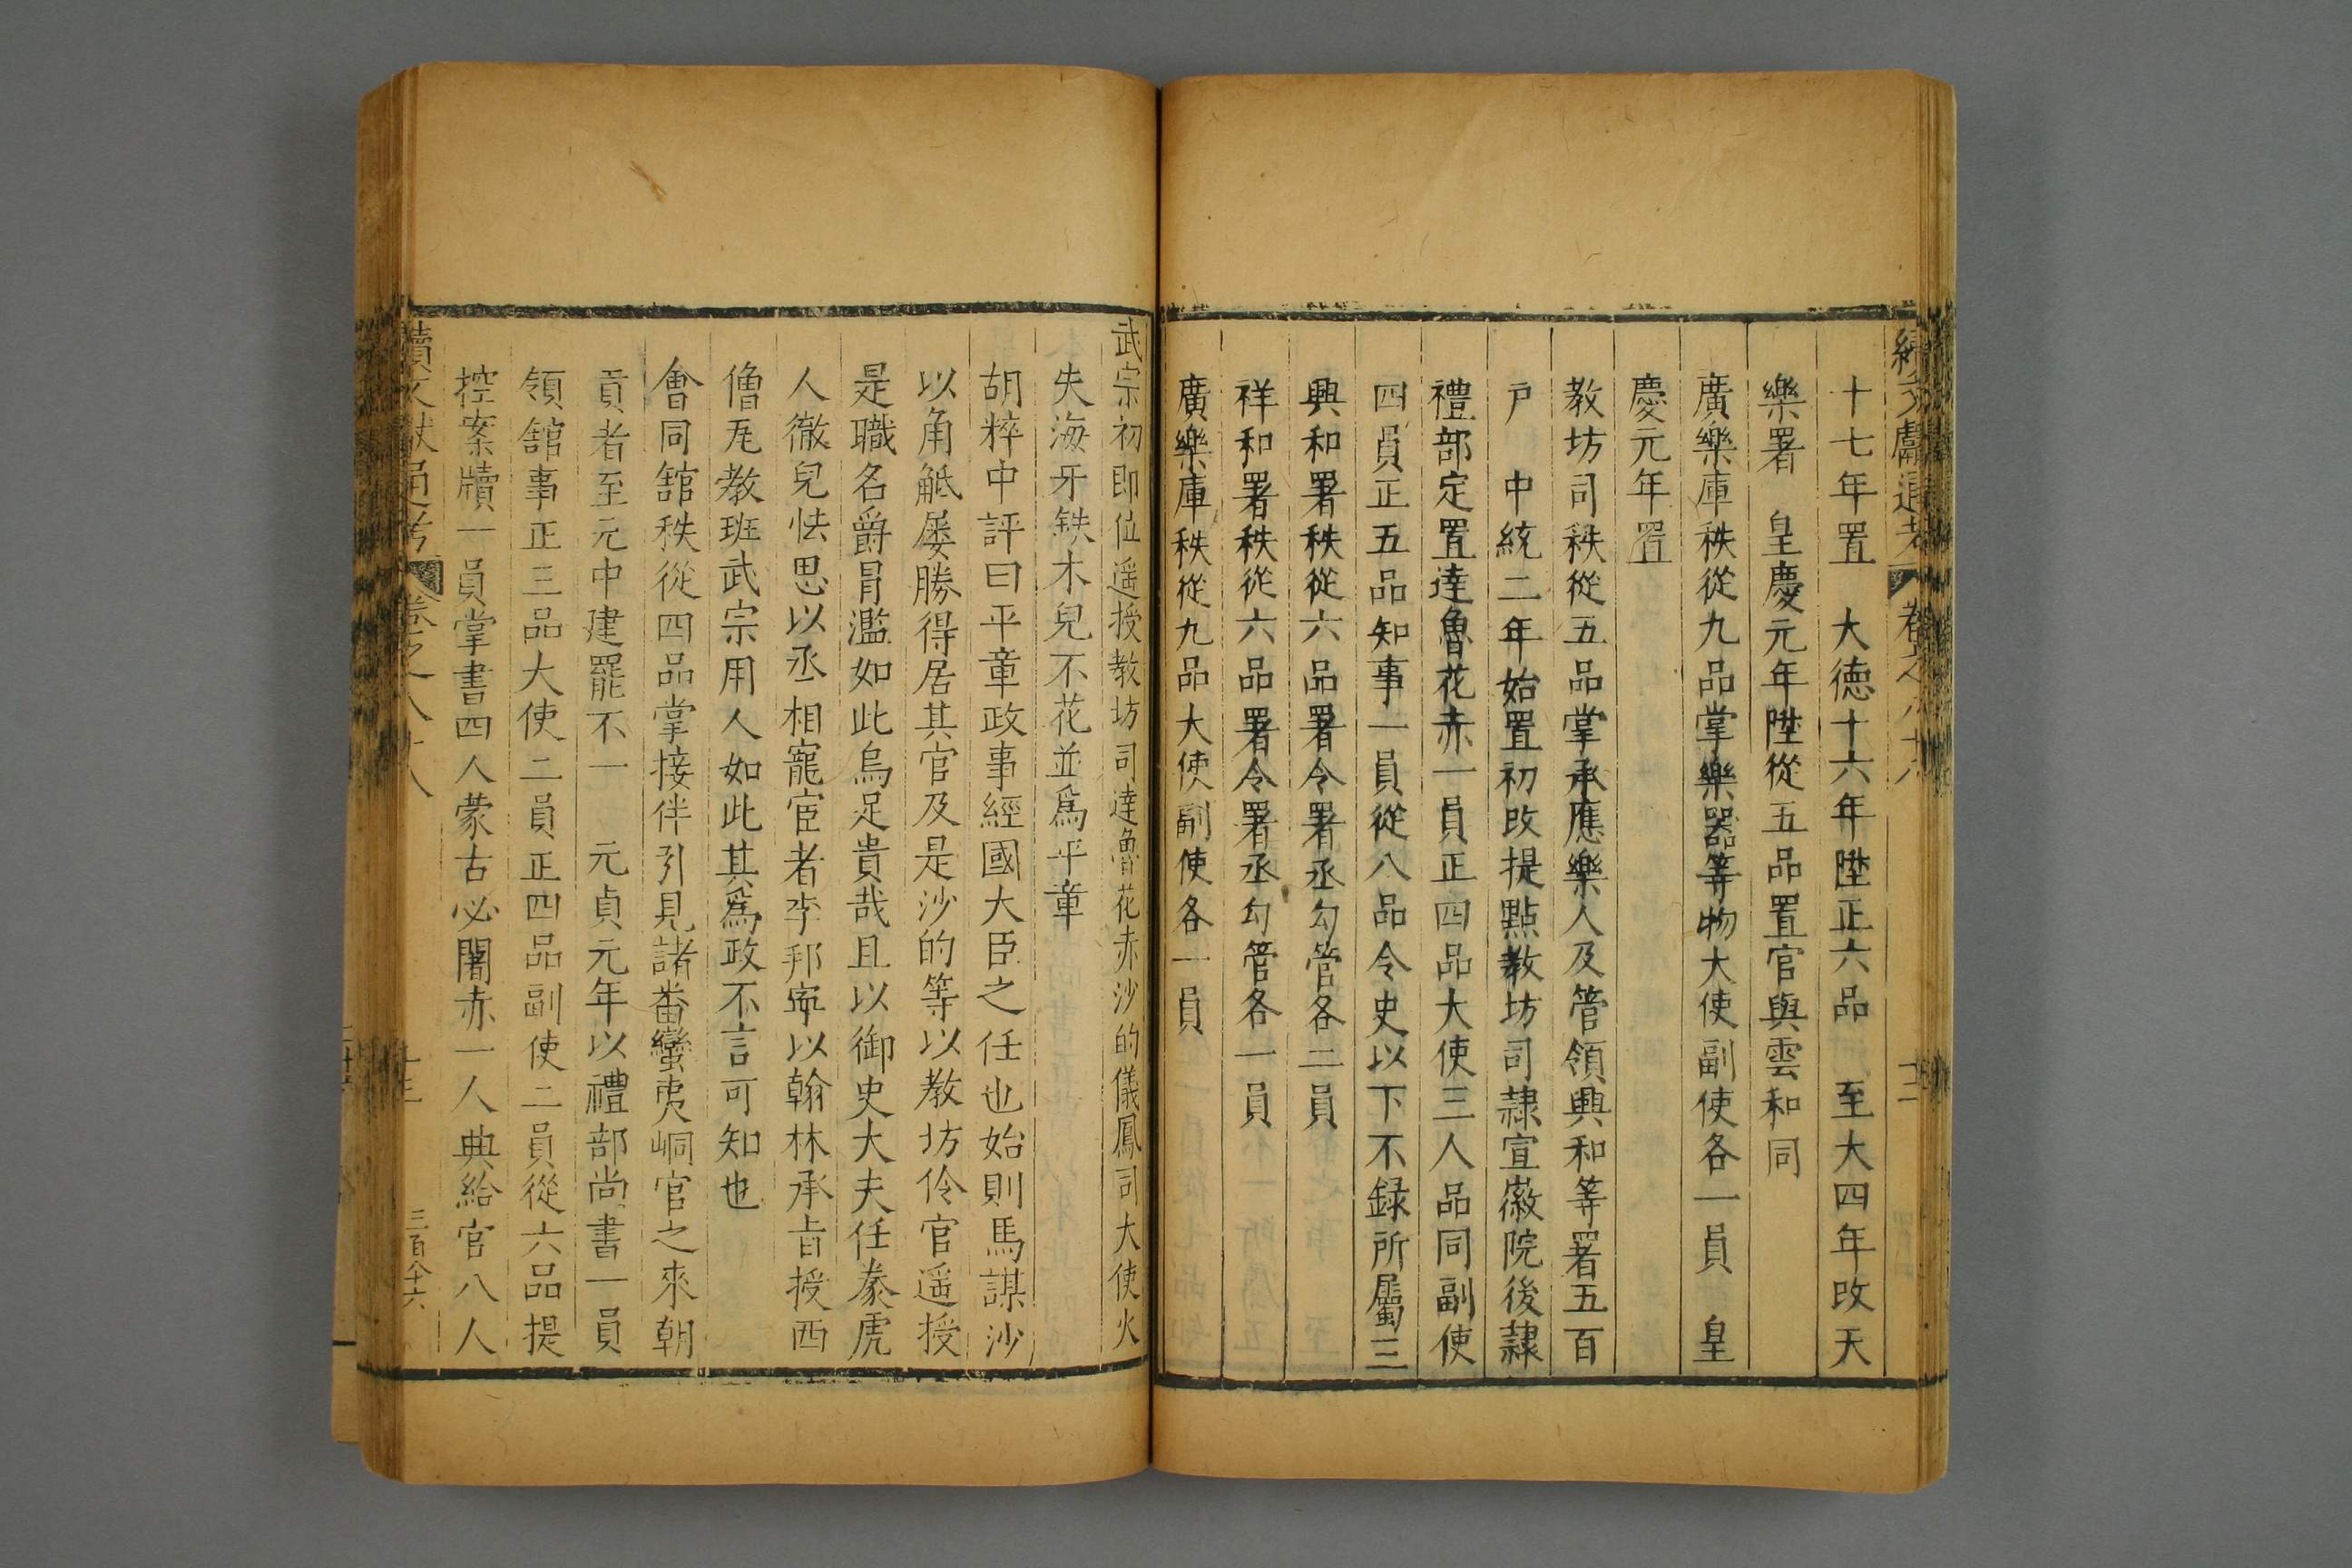 十七年置　大德十六年陞正六品　至大四年改天
樂署　皇慶元年陞從五品置官與雲和同
廣樂庫秩從九品掌樂器等物大使副使各一員　皇
慶元年置
教坊司秩從五品掌承應樂人及管領興和等署五百
戶　中統二年始置初改提點教坊司隸宣徽院後隸
禮部定置達魯花赤一員正四品大使三人品同副使
四員正五品知事一員從八品令史以下不錄所屬三
興和署秩從六品署令署丞勾管各二員
祥和署秩從六品署令署丞勾管各一員
廣樂庫秩從九品大使副使各一員
武宗初即位遥授教坊司達魯花赤沙的儀鳳司大使火
失海牙鉄木兒不花並爲平章
胡粹中評曰平章政事經國大臣之任也始則馬謀沙
以角觝屡勝得居其官及是沙的等以教坊伶官遥授
是職名爵冐濫如此烏足貴哉且以御史大夫任豢虎
人徹兒怯思以丞相寵宦者李邦寧以翰林承旨授西
僧㐲教班武宗用人如此其爲政不言可知也
會同舘秩從四品掌接伴引見諸番蠻夷峒官之來朝
貢者至元中建罷不一　元貞元年以禮部尚書一員
領舘事正三品大使二員正四品副使二員從六品提
控案牘一員掌書四人蒙古必闍赤一人典給官八人
續文獻通考　卷之八十八　十三　三百八十六